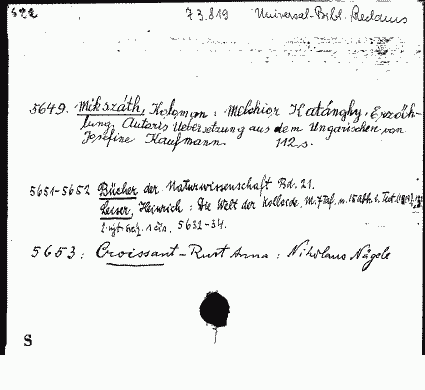 622 73.819 Universal-Bibl. Reclams
5649. Mikszáth, Koloman: Melchior Katánghy, Erzäh-
lung. Autoris Uebersetzung aus dem Ungarischen von
Josefine Kaufmann. 112 s.
5651-5652 Bücher der Naturwissenschaft Bd. 21.
Leiser, Heinrich: Die Welt der Kolloide. M. 7 Taf. u. 15 Abb. i. Text
5631-34.
5653: Croissant-Rust Anna: Nikolaus Nägele
S